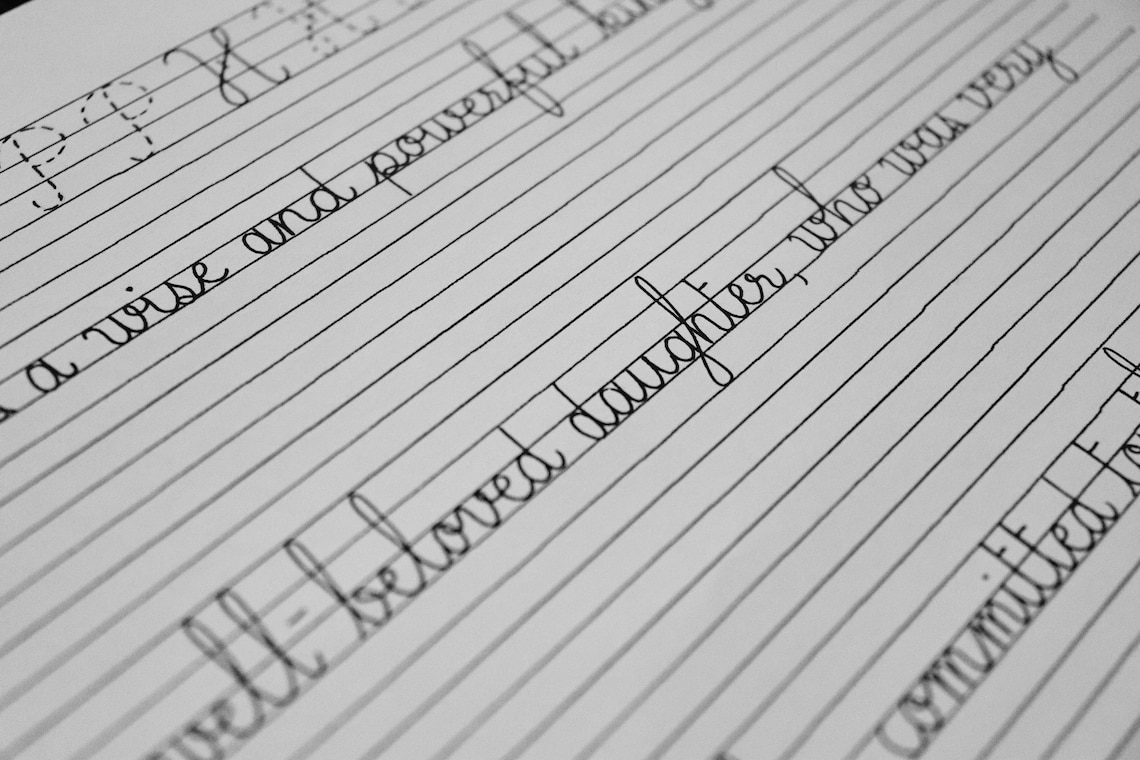 P P H H
a wise and powerful king
well-beloved daughter, who was very
committed